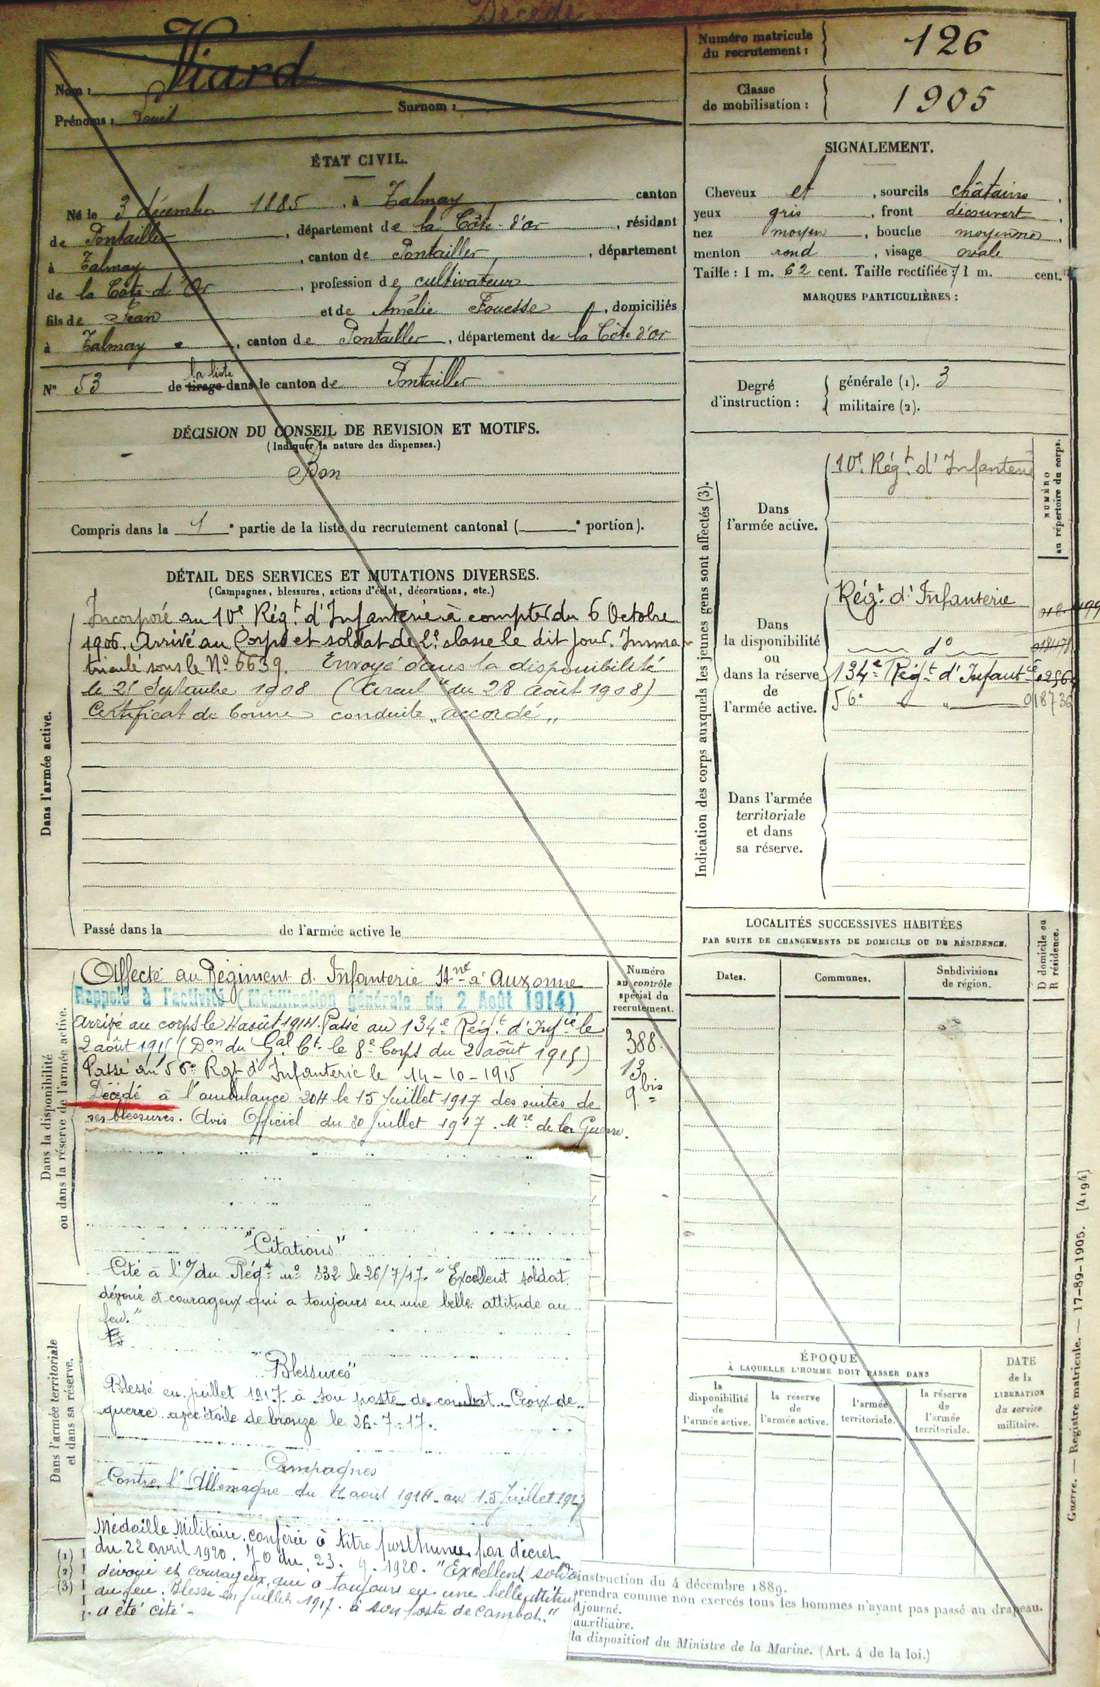 Décédé
Nom : Viard
Prénoms : Surnom :
Numéro matricule
du recrutement : 126
Classe
de mobilisation : 1905
ÉTAT CIVIL.
Né le 3 décembre 1885, à Talmay canton
de Pontailler, département de la Côte-d'or, résidant
à Talmay, canton de Pontailler, département
de la Côte-d'Or, profession de cultivateur
fils de Jean et de Amélie, domiciliés
à Talmay, canton de Pontailler, département de la Côte d'or
N° 53 de la liste tirage dans le canton de Pontailler
DÉCISION DU CONSEIL DE REVISION ET MOTIFS.
(Indiquer la nature des dispenses.)
Bon
Compris dans la 1e partie de la liste du recrutement cantonal ( e portion).
SIGNALEMENT.
Cheveux et, sourcils châtains,
yeux gris, front découvert,
nez moyen, bouche moyenne,
menton rond, visage ovale
Taille : 1 m. 62 cent. Taille rectifiée : 1 m. cent.
MARQUES PARTICULIÈRES :
Degré
d'instruction :
générale (1). 3
militaire (2).
DÉTAIL DES SERVICES ET MUTATIONS DIVERSES.
(Campagnes, blessures, actions d'éclat, décorations, etc.)
Dans l'armée active.
Incorporé au 10e Régt d'Infanterie à compter du 6 Octobre
1906. Arrivé au Corps et soldat de 2e classe le dit jour. Imma-
triculé sous le No 6639. Envoyé dans la disponibilité
le 25 Septembre 1908 (Circul" du 28 août 1908)
Certificat de bonne conduite „accordé„
Passé dans la de l'armée active le
Indication des corps auxquels les jeunes gens sont affectés (3).
NUMÉRO
au répertoire du corps.
Dans
l'armée active.
10e Régt d'Infanterie
Dans
la disponibilité
ou
dans la réserve
de
l'armée active.
Régt d'Infanterie
do
134e Régt d'Infantie
56e " 018736
Dans l'armée
territoriale
et dans
sa réserve.
Dans la disponibilité
ou dans la réserve de l'armée active.
Affecté au Régiment d'Infanterie Stné à Auxonne
Rappelé à l'activité (Mobilisation générale du 2 Août 1914)
Arrivé au corps le 4 août 1914. Passé au 134e Régt d'Infie le
2 août 1915 (Don du Gal Ct le 8e Corps du 2 août 1915)
Passé au 56e Rgt d'Infanterie le 14-10-1915
Décédé à l'ambulance 204 le 15 Juillet 1917 des suites de
ses blessures. Avis Officiel du 30 Juillet 1917. Mre de la Guerre.
Numéro
au contrôle
spécial du
recrutement.
388
13
9bis
"Citations"
Cité à l'O/ du Régt no 332 le 26/7/17. "Excellent soldat
dévoué et courageux qui a toujours eu une belle attitude au
feu."
"Blessures"
Blessé en juillet 1917 à son poste de combat. Croix de
guerre avec étoile de bronze le 26-7-17.
Campagnes
Contre l'Allemagne du 4 août 1914 au 15 Juillet 1917
Dans l'armée territoriale
et dans sa réserve.
Médaille Militaire conférée à titre posthume par décret
du 22 avril 1920. JO du 23. 9. 1920. "Excellent soldat
dévoué et courageux, qui a toujours eu une belle attitude
au feu. Blessé en juillet 1917 à son poste de combat."
a été cité.
LOCALITÉS SUCCESSIVES HABITÉES
PAR SUITE DE CHANGEMENTS DE DOMICILE OU DE RÉSIDENCE.
Dates.
Communes.
Subdivisions
de région.
D domicile ou
R résidence.
ÉPOQUE
À LAQUELLE L'HOMME DOIT PASSER DANS
la
disponibilité
de
l'armée active.
la réserve
de
l'armée active.
l'armée
territoriale.
la réserve
de
l'armée
territoriale.
DATE
de la
LIBÉRATION
du service
militaire.
(1)
(2)
(3)
instruction du 4 décembre 1889.
prendra comme non exercés tous les hommes n'ayant pas passé au drapeau.
Ajourné.
auxiliaire.
la disposition du Ministre de la Marine. (Art. 4 de la loi.)
Guerre. — Registre matricule. — 17-89-1905. [4194]